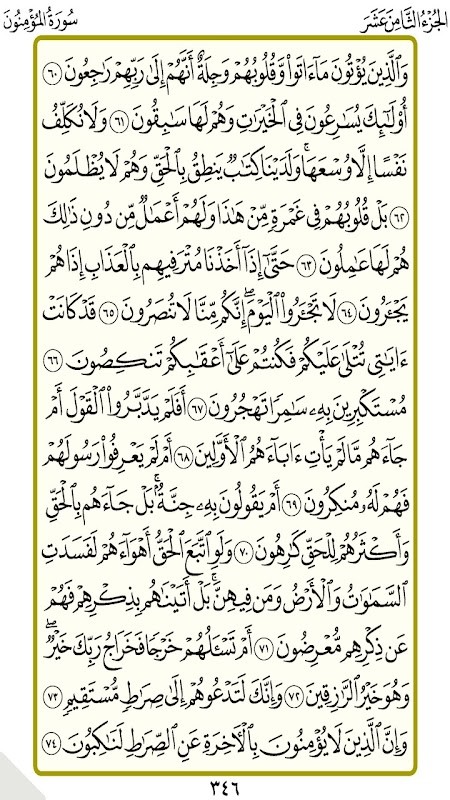 الجزء الثامن عشر
سورة المؤمنون
وَٱلَّذِينَ يُؤْتُونَ مَآ ءَاتَوا۟ وَّقُلُوبُهُمْ وَجِلَةٌ أَنَّهُمْ إِلَىٰ رَبِّهِمْ رَٰجِعُونَ ٦٠
أُو۟لَٰٓئِكَ يُسَٰرِعُونَ فِى ٱلْخَيْرَٰتِ وَهُمْ لَهَا سَٰبِقُونَ ٦١ وَلَا نُكَلِّفُ
نَفْسًا إِلَّا وُسْعَهَا ۚ وَلَدَيْنَا كِتَٰبٌ يَنطِقُ بِٱلْحَقِّ وَهُمْ لَا يُظْلَمُونَ
٦٢ بَلْ قُلُوبُهُمْ فِى غَمْرَةٍ مِّنْ هَٰذَا وَلَهُمْ أَعْمَٰلٌ مِّن دُونِ ذَٰلِكَ
هُمْ لَهَا عَٰمِلُونَ ٦٣ حَتَّىٰٓ إِذَآ أَخَذْنَا مُتْرَفِيهِم بِٱلْعَذَابِ إِذَا هُمْ
يَجْـَٔرُونَ ٦٤ لَا تَجْـَٔرُوا۟ ٱلْيَوْمَ ۖ إِنَّكُم مِّنَّا لَا تُنصَرُونَ ٦٥ قَدْ كَانَتْ
ءَايَٰتِى تُتْلَىٰ عَلَيْكُمْ فَكُنتُمْ عَلَىٰٓ أَعْقَٰبِكُمْ تَنكِصُونَ ٦٦
مُسْتَكْبِرِينَ بِهِۦ سَٰمِرًا تَهْجُرُونَ ٦٧ أَفَلَمْ يَدَّبَّرُوا۟ ٱلْقَوْلَ أَمْ
جَآءَهُم مَّا لَمْ يَأْتِ ءَابَآءَهُمُ ٱلْأَوَّلِينَ ٦٨ أَمْ لَمْ يَعْرِفُوا۟ رَسُولَهُمْ
فَهُمْ لَهُۥ مُنكِرُونَ ٦٩ أَمْ يَقُولُونَ بِهِۦ جِنَّةٌۢ ۚ بَلْ جَآءَهُم بِٱلْحَقِّ
وَأَكْثَرُهُمْ لِلْحَقِّ كَٰرِهُونَ ٧٠ وَلَوِ ٱتَّبَعَ ٱلْحَقُّ أَهْوَآءَهُمْ لَفَسَدَتِ
ٱلسَّمَٰوَٰتُ وَٱلْأَرْضُ وَمَن فِيهِنَّ ۚ بَلْ أَتَيْنَٰهُم بِذِكْرِهِمْ فَهُمْ
عَن ذِكْرِهِم مُّعْرِضُونَ ٧١ أَمْ تَسْـَٔلُهُمْ خَرْجًا فَخَرَاجُ رَبِّكَ خَيْرٌ ۖ
وَهُوَ خَيْرُ ٱلرَّٰزِقِينَ ٧٢ وَإِنَّكَ لَتَدْعُوهُمْ إِلَىٰ صِرَٰطٍ مُّسْتَقِيمٍ ٧٣
وَإِنَّ ٱلَّذِينَ لَا يُؤْمِنُونَ بِٱلْءَاخِرَةِ عَنِ ٱلصِّرَٰطِ لَنَٰكِبُونَ ٧٤
٣٤٦